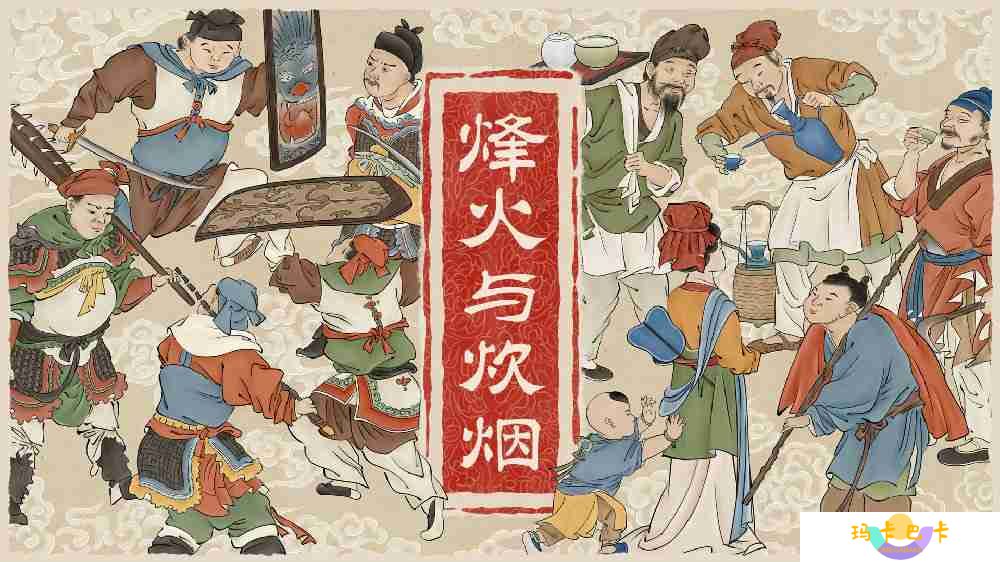 烽火与炊烟
玛卡巴卡